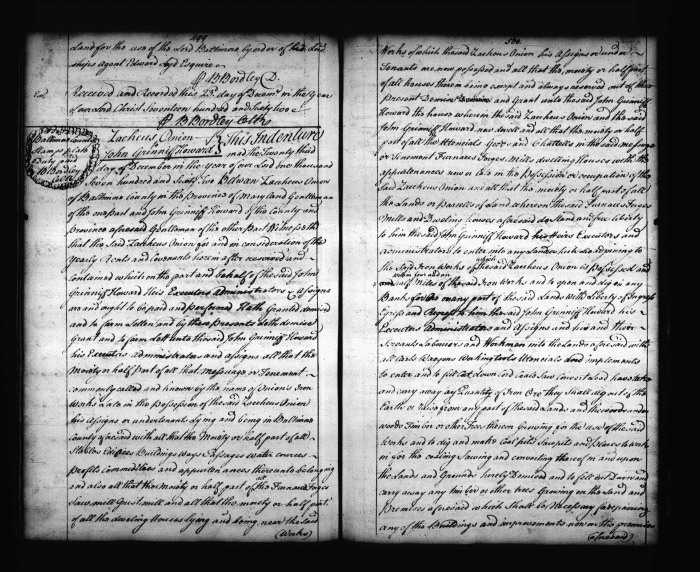 499
Land for the use of the Lord Baltimore by order of his Lord
ships agent Edward Lloyd Esquire
B Bordley D.
Received and Recorded this 23d day of Decemr. in the Year
of our Lord Christ Seventeen hundred and Sixty two
B Bordley Clk
Baltimore County
Stamps
Duty paid
B Bordley
Zacheus Onion
John Grinniff Howard
This Indenture
made the Twenty third
day of December in the year of our Lord One thousand
Seven hundred and Sixty two Between Zacheus Onion
of Baltimore County in the Province of Maryland Gentleman
of the one part and John Grinniff Howard of the County and
Province aforesaid Gentleman of the other Part Witnesseth
that the said Zacheus Onion for and in consideration of the
Yearly Rents and Covenants herein after reserved and
Contained which on the part and behalf of the said John
Grinniff Howard His Executors Administrators Assigns
are and ought to be paid and performed Hath Granted demised
and to farm Letten and by these Presents doth demise
Grant and to farm Lett unto the said John Grinniff Howard
his Executors Administrators and assigns all that the
Moiety or half Part of all that Messuage or Tenement
commonly called and known by the name of Onion's Iron
Works Late in the Possession of the said Zacheus Onion
his Assigns or undertenants lying and being in Baltimore
County aforesaid with all that the Moiety or half part of all
Stables Edifices Buildings Ways Passages water courses
Profits Commodities and appurtenances thereunto belonging
and also all that the Moiety or half part of the Furnace Forges
Saw mill Grist mill and all that the moiety or half part
of all the dweling Houses lying and being near the said
(Works)
500
Works of which the said Zacheus Onion his Assigns or under
Tenants are now possessed and all that the moiety or half part
of all houses therein being except and always reserved out of this
Present Demise and Grant unto the said John Grinniff
Howard the house wherein the said Zacheus Onion and the said
John Grinniff Howard now dwell and all that the moiety or half
part of all the Utensials Goods and Chattells in the said messuage
or Tenement Furnaces Forges Mills dwelling Houses with the
appurtenances now or late in the Possession or occupation of the
said Zacheus Onion and all that the moiety or half part of all
the Lands or Parcels of Land whereon the said Furnaces Forges
Mills and Dweling houses aforesaid do Stand and free liberty
to him the said John Grinniff Howard his Heirs Executors and
Administrators to enter into any Lands adjoining to
the said Iron Works of which the said Zacheus Onion is Possessed and
Miles of the said Iron Works and to open and dig in any
Banks for as many part of the said Lands with liberty of Ingress
Egress and Regress to him the said John Grinniff Howard his
Executors Administrators and Assigns and his and their
Servants Labourers and Workmen into the Lands aforesaid with
all Carts Waggons Utensials and implements
to enter and to fell Cut Down Cord Coals Saw Convert Load have take
and carry away any Quantity of Iron Ore they Shall dig out of the
Earth or raise from any part of the said Lands and the wood under
wood Timber or other Trees thereon Growing for the use of the said
Works and to dig and make Coal pits Sawpits and places to work
in for the coaling Sawing and converting thereof in and upon
the Lands and Grounds hereby Demised and to fell cut Down and
carry away any timber or other trees Growing on the Land and
Premises aforesaid which Shall be Necessary for repairing
any of the Buildings and improvements now on the premises
(aforesaid)